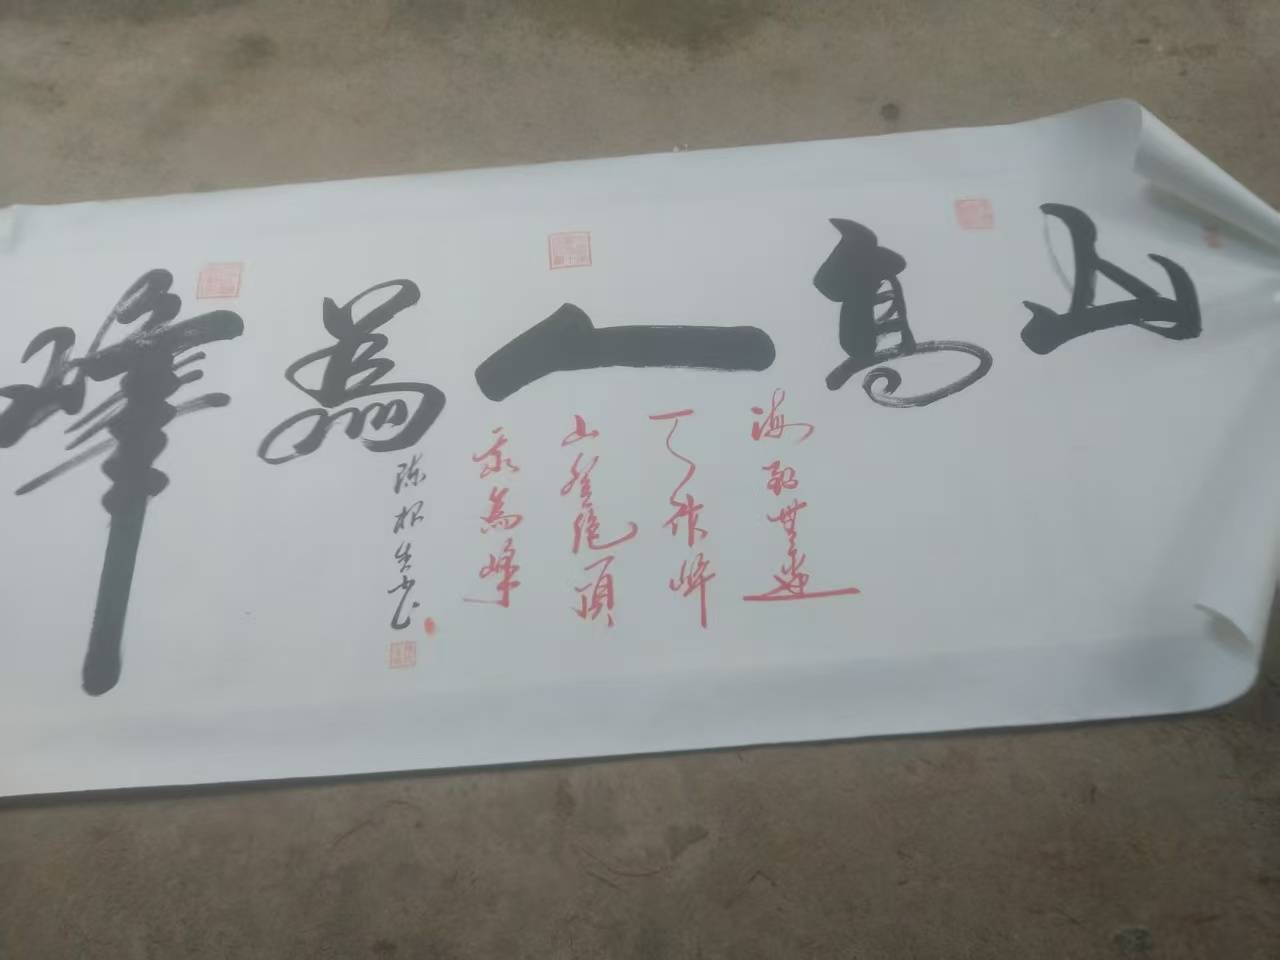 山高人為峰
海到無邊
天作岸
山登絕頂
我為峰
陈根生书